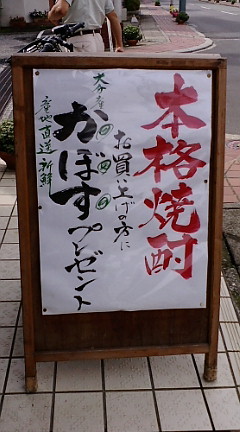 本格焼酎
お買い上げの方に
かぼすプレゼント
大分産
産地直送 新鮮